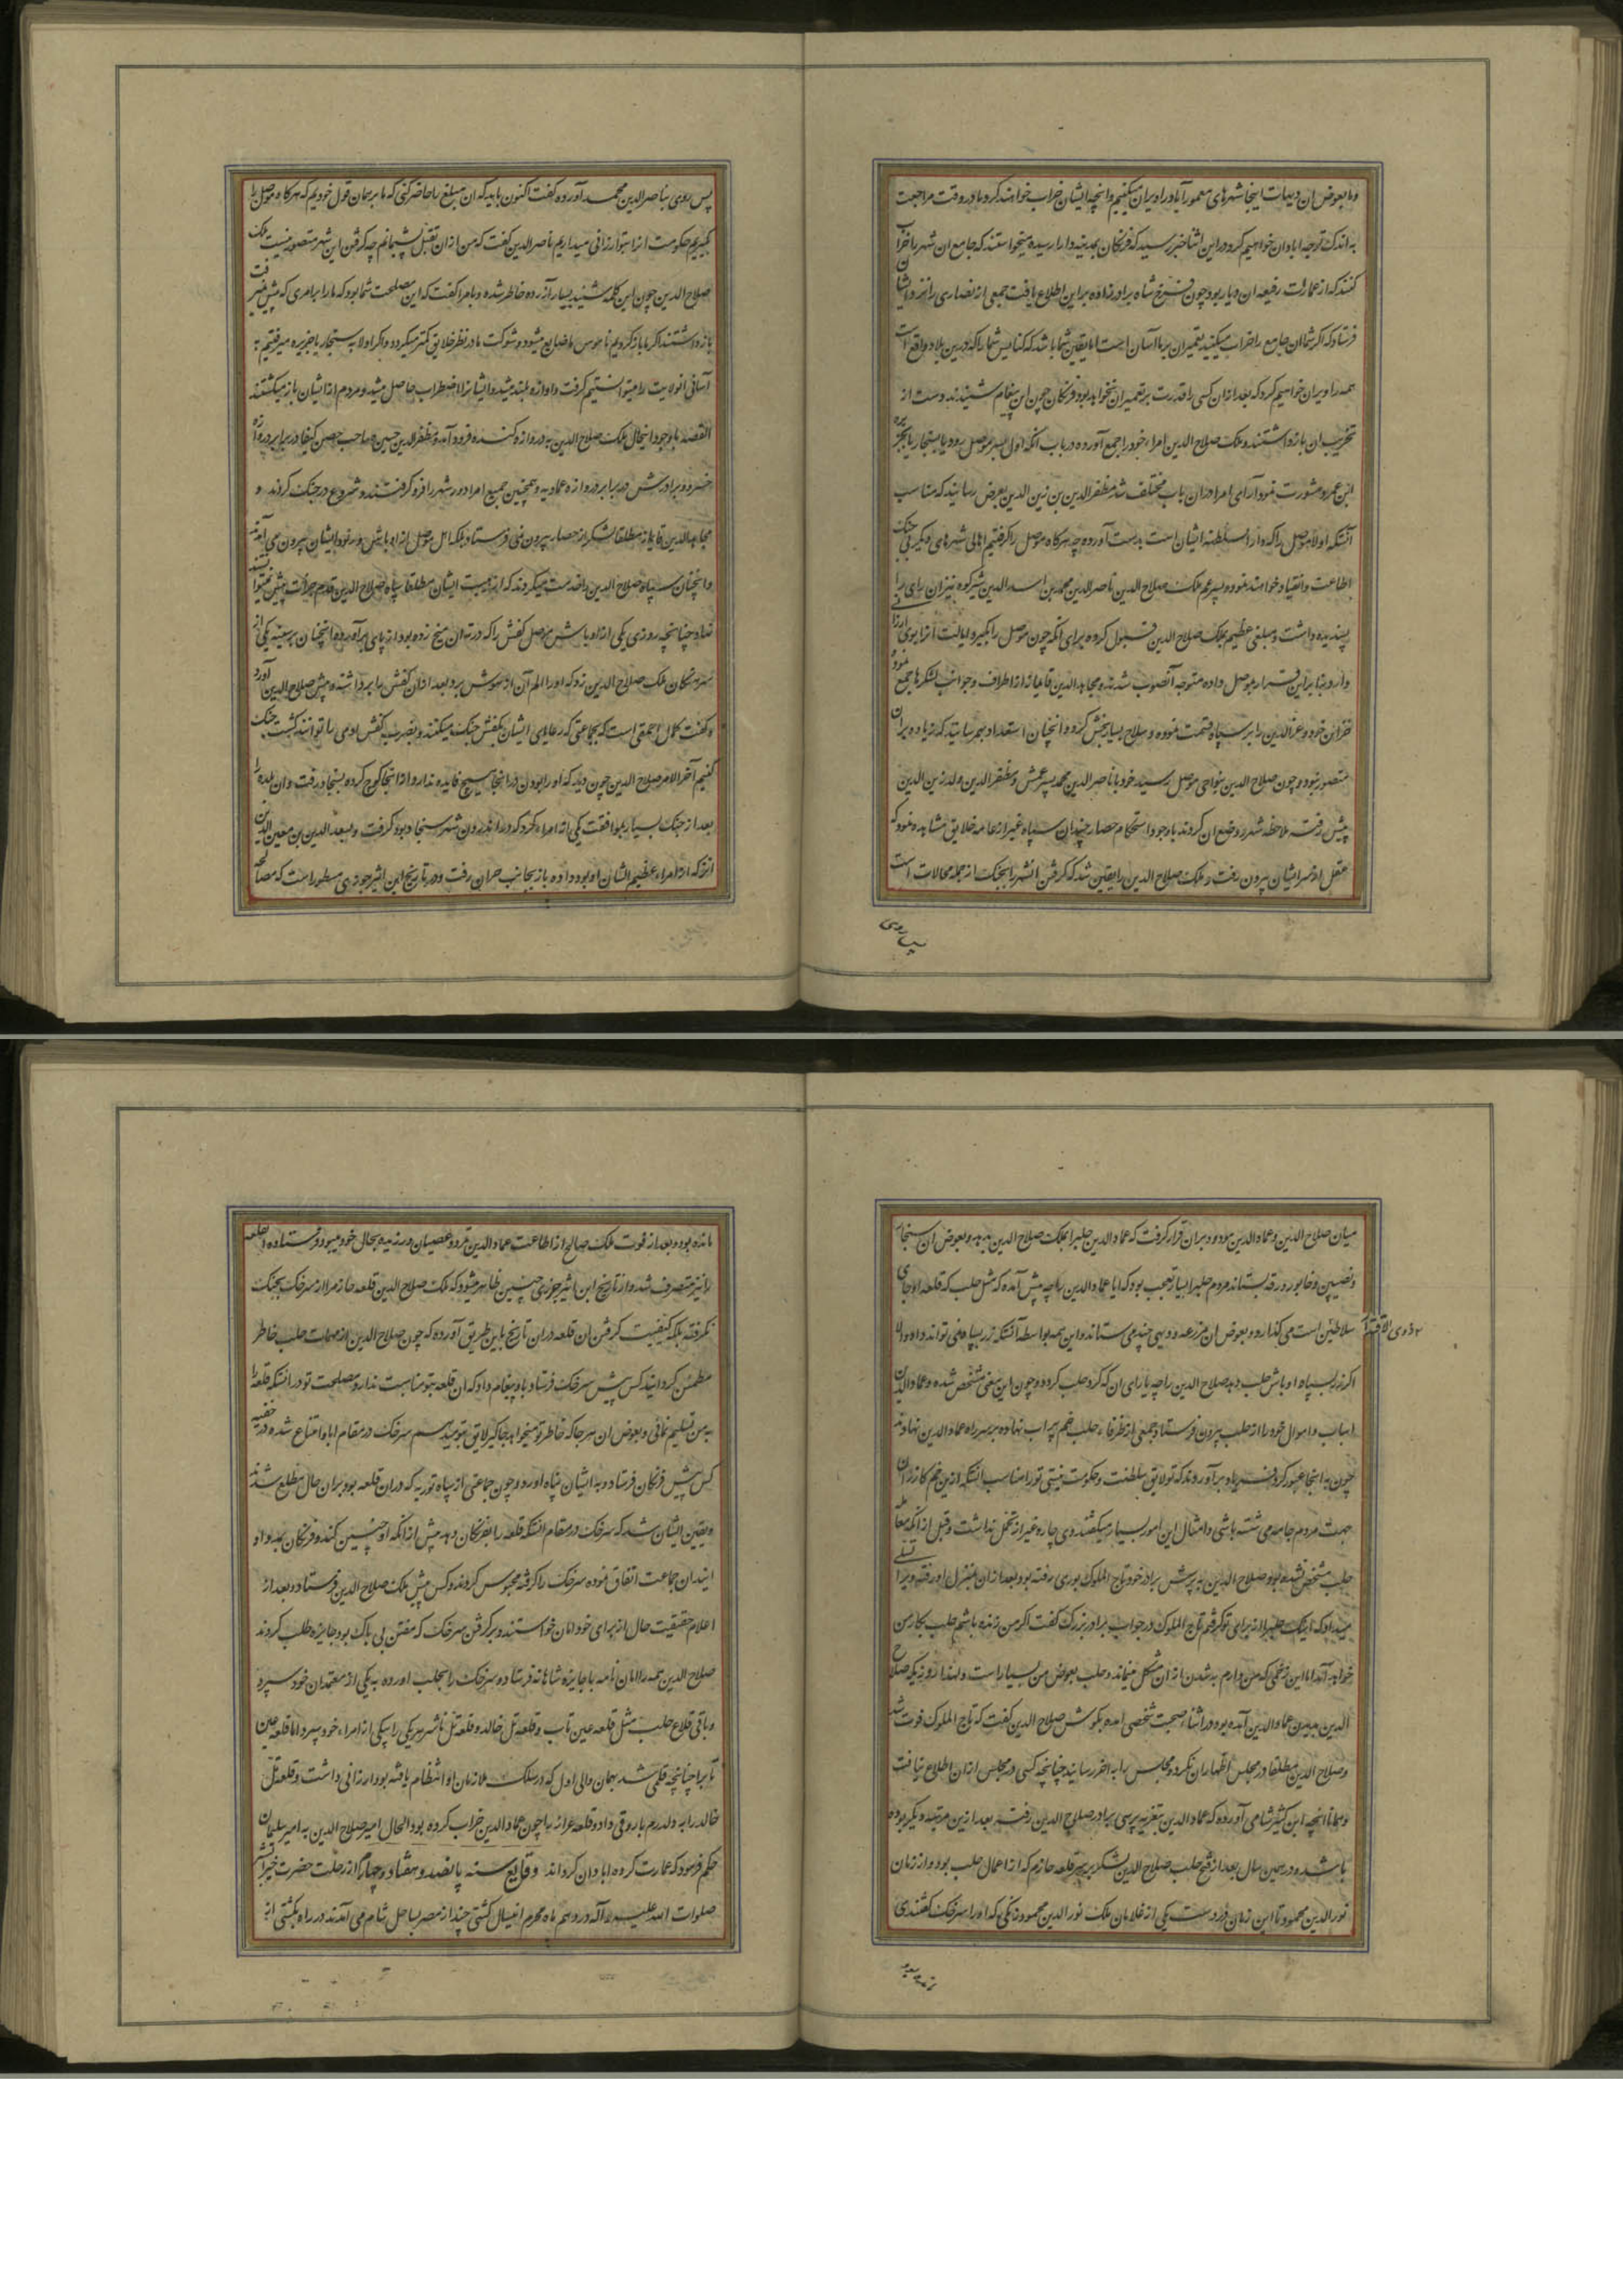 وما بعوض ان دیهات اینجا شهرهای معمور آبادر را ویران میکنیم و انچه ایشان خراب خواهند کرد ما در وقت مراجعت
به اندک توجه ابادان خواهیم کرد در این اثنا خبر رسید که فرنکان بمدینه دارا رسیده میخواستند که جامع ان شهر را خراب
کنند که از عمارات رفیعه ان دیار بود چون فرخ شاه برادرزاده براین اطلاع یافت جمعی از نصاری را نزد ایشان
فرستاد که اکر شما ان جامع را خراب میکنید تعمیر ان بر ما آسان است اما یقین شما باشد که کنایس شما را که درین بلاد واقع است
همه را ویران خواهیم کرد که بعد از ان کسی را قدرت بر تعمیر ان نخواهد بود فرنکان چون این پیغام شنیدند دست از
تخریب ان بازداشتند و ملک صلاح الدین امراء خود را جمع آورده در باب انکه اول بسر موصل رود یا بسنجار یا بجزیره
ابن عمر و مشورت نمود آرای امرا دران باب مختلف شد مظفر الدین بن زین الدین بعرض رسانید که مناسب
آنستکه اولا موصل را که دار السلطنه ایشان است بدست آورده چه هرکاه موصل را کرفتیم اهالی شهرهای دیکر بی جنک
اطاعت و انقیاد خواهند نمود و پسر عم ملک صلاح الدین ناصر الدین محمد بن اسد الدین شیرکوه نیز ان رای را
پسندیده داشت و مبلغی عظیم بملک صلاح الدین قبول کرده برای انکه چون موصل را بکیرد ایالت انرا بوی ارزانی
دارد بنابراین قرار بموصل داده متوجه آنصوب شدند و مجاهد الدین قایماز از اطراف و جوانب لشکرها جمع نموده
خزاین خود و عز الدین را بر سپاه قسمت نموده و سلاح بسیار بخش کرد و انچنان استعداد بهم رسانید که زیاده بران
متصور نبود و چون صلاح الدین بنواحی موصل رسید خود با ناصر الدین محمد پسر عمش و مظفر الدین ولد زین الدین
پیش رفته ملاحظه شهر و وضع ان کردند باوجود استحکام حصار چندان سپاه غیر از عامه خلایق مشاهده نمود که
عقل از سر ایشان بیرون رفت و ملک صلاح الدین را یقین شد که کرفتن انشهر را بجنک از جمله محالات است
پس روی
پس روی بناصر الدین محمد آورده کفت اکنون باید که ان مبلغ را حاضر کنی که ما بر همان قول خودیم که هرکاه موصل را
بکیریم حکومت انرا بتو ارزانی میداریم ناصر الدین کفت که من از ان تقبل پشیمانم چه کرفتن این شهر متصور نیست ملک
صلاح الدین چون این کلمه شنید بسیار آزرده خاطر شده و بامرا کفت که این مصلحت شما بود که ما را برامری که پیش نمیرفت
بازداشتند اکر ما بازکردیم ناموس ما ضایع میشود و شوکت ما در نظر خلایق کمتر میکردد و اکر اولا به سنجار یا جزیره میرفتیم به
آسانی انولایت را میتوانستیم کرفت و اوازه بلند میشد و ایشانرا اضطراب حاصل میشد و مردم از ایشان باز میکشتند
القصه باوجود اینحال ملک صلاح الدین به دروازه کنده فرود آمد و مظفر الدین حسین و صاحب حصن کیفا در برابر دروازه
خسرو و برادرش در برابر دروازه عمادیه و همچنین جمیع امرا دور شهر را فرو کرفتند و شروع در جنک کردند و
مجاهد الدین قایماز مطلقا لشکر از حصار بیرون نمی فرستاد بلکه اهل موصل از اوباش و رنود ایشان بیرون می آمدند
وانچنان سپاه صلاح الدین را خدمت میکردند که از هیبت ایشان مطلقا سپاه صلاح الدین قدم جرأت پیش نمیتوانستند
نهاد چنانچه روزی یکی از اوباش موصل کفش را که در ته ان میخ زده بود از پای برآورده انچنان بر سینه یکی از
سرهنکان ملک صلاح الدین زد که اورا الم آن از هوش برد بعد ازان کفش را برداشته پیش صلاح الدین آورد
و کفت کمال احمقی است که بجماعتی که رعایای ایشان بکفش جنک میکنند و بضرب کفش ادمی را توانند کشت جنک
کنیم آخر الامر صلاح الدین چون دید که اورا بودن در انجا هیچ فایده ندارد از انجا کوچ کرده بسنجار رفت و ان بلده را
بعد از جنک بسیار بموافقت یکی از امراء کرد که در اندرون شهر سنجار بود کرفت و بسعد الدین بن معین الدین
انز که از امراء عظیم الشان او بود داده باز بجانب حران رفت و در تاریخ ابن اثیر جوزی مسطور است که مصالحه
میان صلاح الدین و عماد الدین مودود بران قرار کرفت که عماد الدین حلب را بملک صلاح الدین بدهد و بعوض ان سنجار
و نصیبین و خابور و رقه بستاند مردم حلب را بسیار تعجب بود که ایا عماد الدین را چه پیش آمده که مثل حلب که قلعه او جای
سلاطین ذوی الاقتدار است می کذارد و بعوض ان مزرعه و دیهی چند می ستاند و این همه بواسطه آنستکه زر بسپاه نمی تواند داد و الا
اکر زر بسپاه و اوباش حلب دهد صلاح الدین را چه یارای ان که کرد حلب کردد و چون این معنی مشخص شده و عماد الدین
اسباب و اموال خود را از حلب بیرون فرستاد جمعی از ظرفاء حلب خم پر اب نهاده بر سر راه عماد الدین نهادند
چون به انجا عبور کرد فریاد برآوردند که تو لایق سلطنت و حکومت نیستی تو را مناسب انستکه ازین خم کازران
بجهت مردم جامه می شسته باشی و امثال این امور بسیار میکفتند وی چاره غیر از تحمل نداشت و قبل از انکه معامله
حلب مشخص نشده بود صلاح الدین به پرسش برادر خود تاج الملوک بوری رفته بود بعد ازان بمنزل او رفته و برا تسلی
میداد که اینک حلب را از برای تو کرفتم تاج الملوک در جواب برادر بزرک کفت اکر من زنده باشم حلب بکار من
خواهد آمد اما این زخمی که من دارم به شدن از ان مشکل مینماید و حلب بعوض من بسیار است و بعد از روزیکه صلاح
الدین بدیدن عماد الدین آمده بود در اثناء صحبت شخصی امده بکوش صلاح الدین کفت که تاج الملوک فوت شد
و صلاح الدین مطلقا در مجلس اظهار ان نکرد و مجلس را به اخر رسانید چنانچه کسی در مجلس ازان اطلاع نیافت
و همانا انچه ابن کثیر شامی آورده که عماد الدین بتعزیه پرسی برادر صلاح الدین رفته بعد ازین مرتبه دیکر بوده
باشد و در همین سال بعد از فتح حلب صلاح الدین لشکر بر سر قلعه حازم که از اعمال حلب بود و از زمان
نور الدین محمود تا این زمان در دست یکی از غلامان ملک نور الدین محمود زنکی که اورا سرخک کفتندی
مانده بود و بعد از فوت ملک صالح از اطاعت عماد الدین تمرد و عصیان ورزیده بحال خود میبود فرستاده انقلعه
را نیز متصرف شد و از تاریخ ابن اثیر جزری چنین ظاهر میشود که ملک صلاح الدین قلعه حازم را از سرخک بجنک
نکرفته بلکه کیفیت کرفتن ان قلعه دران تاریخ باین طریق آورده که چون صلاح الدین از مهمات حلب خاطر
مطمئن کردانید کس پیش سرخک فرستاد باو پیغام داد که ان قلعه بتو مناسبت ندارد مصلحت تو در انستکه قلعه را
به من تسلیم نمائی و بعوض ان هرجا که خاطر تو میخواهد جاکیر لایق بتو میدهیم سرخک در مقام ابا و امتناع شده در خفیه
کس پیش فرنکان فرستاد و به ایشان پناه اورد و چون جماعتی از سپاه نوریه که دران قلعه بود بران حال مطلع شدند
و یقین ایشان شد که سرخک در مقام انستکه قلعه را بفرنکان دهد پیش از انکه او چنین کند و فرنکان بمدد او
ایند ان جماعت اتفاق نموده سرخک را کرفته محبوس کردند و کس پیش ملک صلاح الدین فرستاد و بعد از
اعلام حقیقت حال از برای خود امان خواستند و بر کرفتن سرخک که مفتن بی باک بود جایزه طلب کردند
صلاح الدین همه را امان نامه با جایزه شاهانه فرستاد و سرخک را بحلب اورده به یکی از معتمدان خود سپرد
و باقی قلاع حلب مثل قلعه عین تاب و قلعه تل خالد و قلعه تل باشر هر یکی را بیکی از امراء خود سپرد اما قلعه عین
تابرا چنانچه قلمی شد بهمان والی اول که در سلک ملازمان او انتظام یافته بود ارزانی داشت و قلعه تل
خالد را به ولدرم باروقی داد و قلعه عزاز را چون عماد الدین خراب کرده بود الحال امیر صلاح الدین به امیر سلیمان
حکم فرمود که عمارت کرده ابادان کرداند وقایع سنه پانصد و هفتاد و چهارم از رحلت حضرت خیر البشر
صلوات الله علیه و آله در دهم ماه محرم اینسال کشتی چند از مصر بساحل شام می آمدند در راه بکشتی از